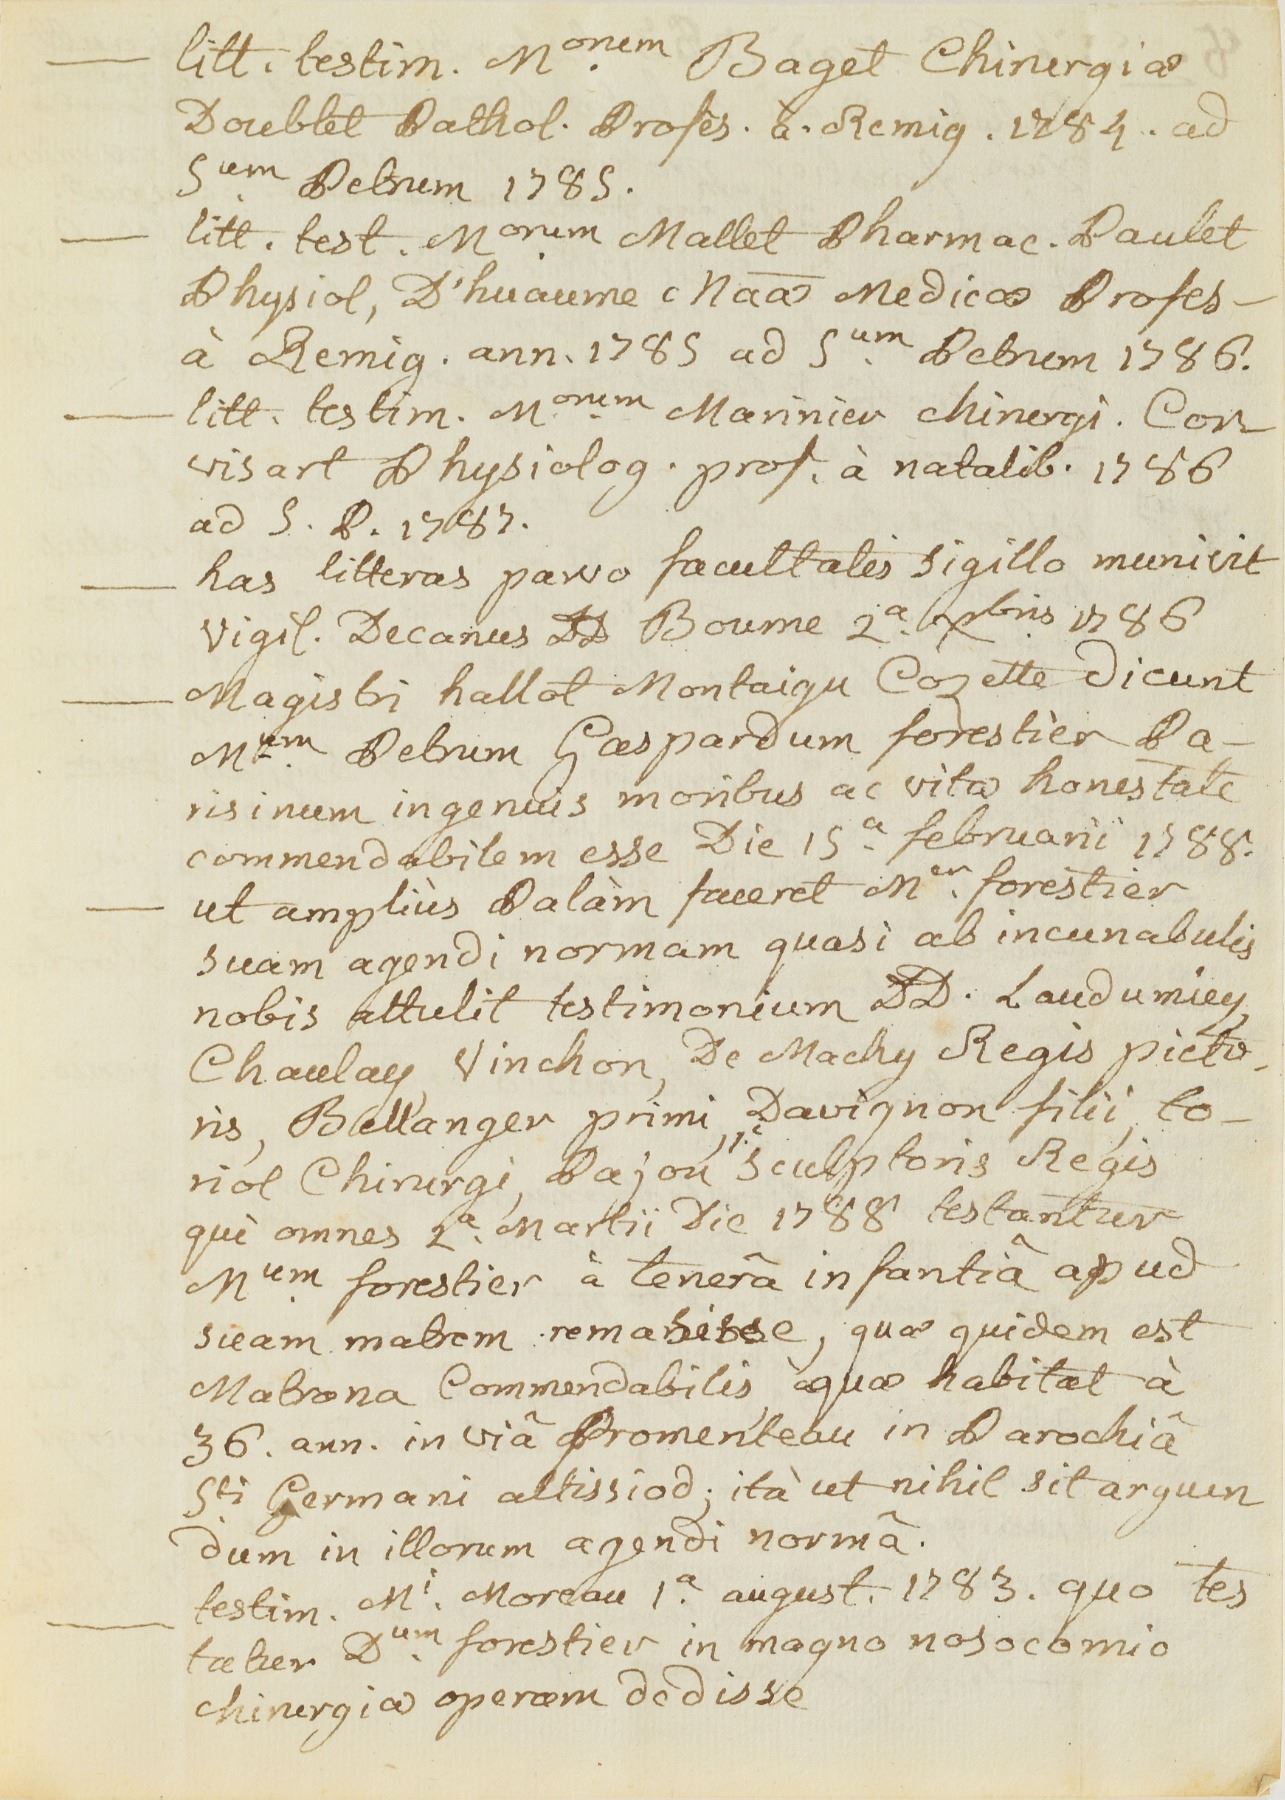 — litt. testim. M.orum Baget Chirurgiæ
Doublet Pathol. Profes. à. Remig. 1784. ad
S.um Petrum 1785.
— litt. test. M.orum Mallet Pharmac. Paulet
Physiol, D'huaume Maæ Medicæ Profes-
à Remig. ann. 1785 ad S.um Petrum 1786.
— litt. testim. M.orum Marinier chirurgi. Cor-
visart Physiolog. prof. à natalib. 1786
ad S. P. 1787.
— has litteras parvo facultatis sigillo munivit
vigil. Decanus DD Bourru 2a. Xbris 1786
— Magistri hallot Montaigu Cozette dicunt
M.um Petrum Gaspardum forestier Pa-
risinum ingenuis moribus ac vitæ honestate
commendabilem esse Die 15a. februarii 1788.
— ut ampliùs Palàm faceret M.er forestier
suam agendi normam quasi ab incunabulis
nobis attulit testimonium DD. Laudumiey,
Chaulay, Vinchon, De Machy Regis picto-
ris, Bellanger primi, Davignon filii, lo-
riol Chirurgi, Pajou 1.i Sculptoris Regis
qui omnes 2a. Martii Die 1788 testantur
M.um forestier à tenerâ infantiâ apud
suam matrem remansisse, quæ quidem est
Matrona Commendabilis, àquæ habitat à
36. ann. in viâ Fromenteau in Parochiâ
Sti Germani altissiod; ità ut nihil sit arguen
dum in illorum agendi normâ.
— testim. M.i Moreau 1.a august. 1783. quo tes
tatur D.um forestier in magno nosocomio
chirurgiæ operam dedisse